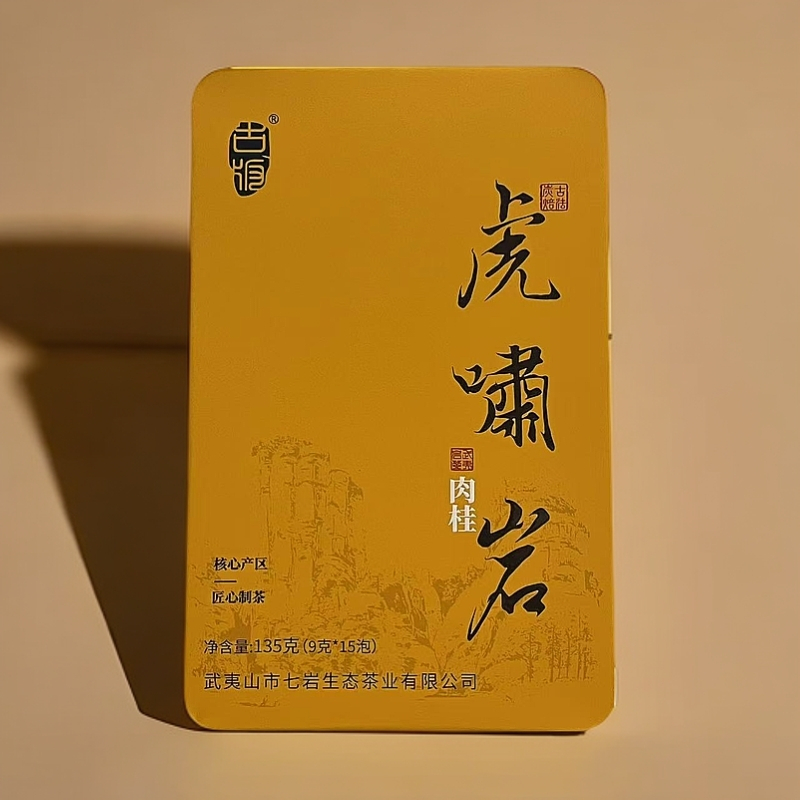 ®
古法
炭焙
虎啸岩
肉桂
核心产区
匠心制茶
净含量:135克(9克*15泡)
武夷山市七岩生态茶业有限公司